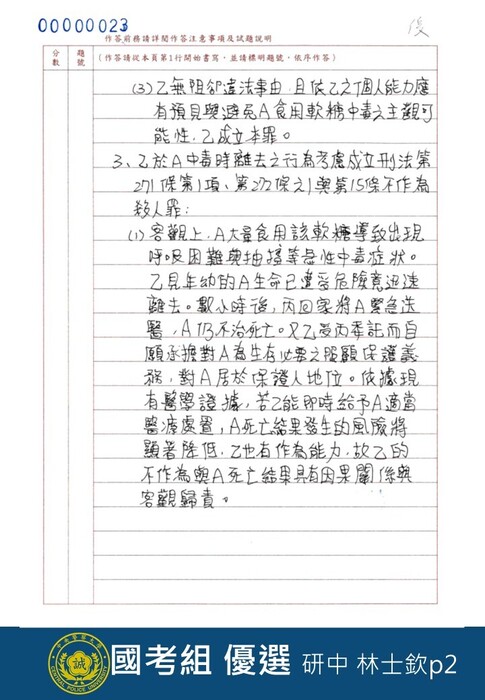 00000023
後
作答前務請詳閱作答注意事項及試題說明
分數
題號
(作答請從本頁第1行開始書寫，並請標明題號，依序作答)
(3)乙無阻卻違法事由，且依乙之個人能力應
有預見與避免A食用軟糖中毒之主觀可
能性，乙成立本罪。
3、乙於A中毒時離去之行為考慮成立刑法第
271條第1項、第272條之1與第15條不作為
殺人罪：
(1)客觀上，A大量食用該軟糖導致出現
呼吸困難與抽搐等急性中毒症狀。
乙見年幼的A生命已遭受危險竟迅速
離去。數小時後，丙回家將A緊急送
醫，A仍不治死亡。又乙受丙委託而自
願承擔對A為生存必要之照顧保護義
務，對A居於保證人地位。依據現
有醫學證據，若乙能即時給予A適當
醫療處置，A死亡結果發生的風險將
顯著降低，乙也有作為能力，故乙的
不作為與A死亡結果具有因果關係與
客觀歸責。
誠
CENTRAL POLICE UNIVERSITY
國考組 優選 研中 林士欽p2